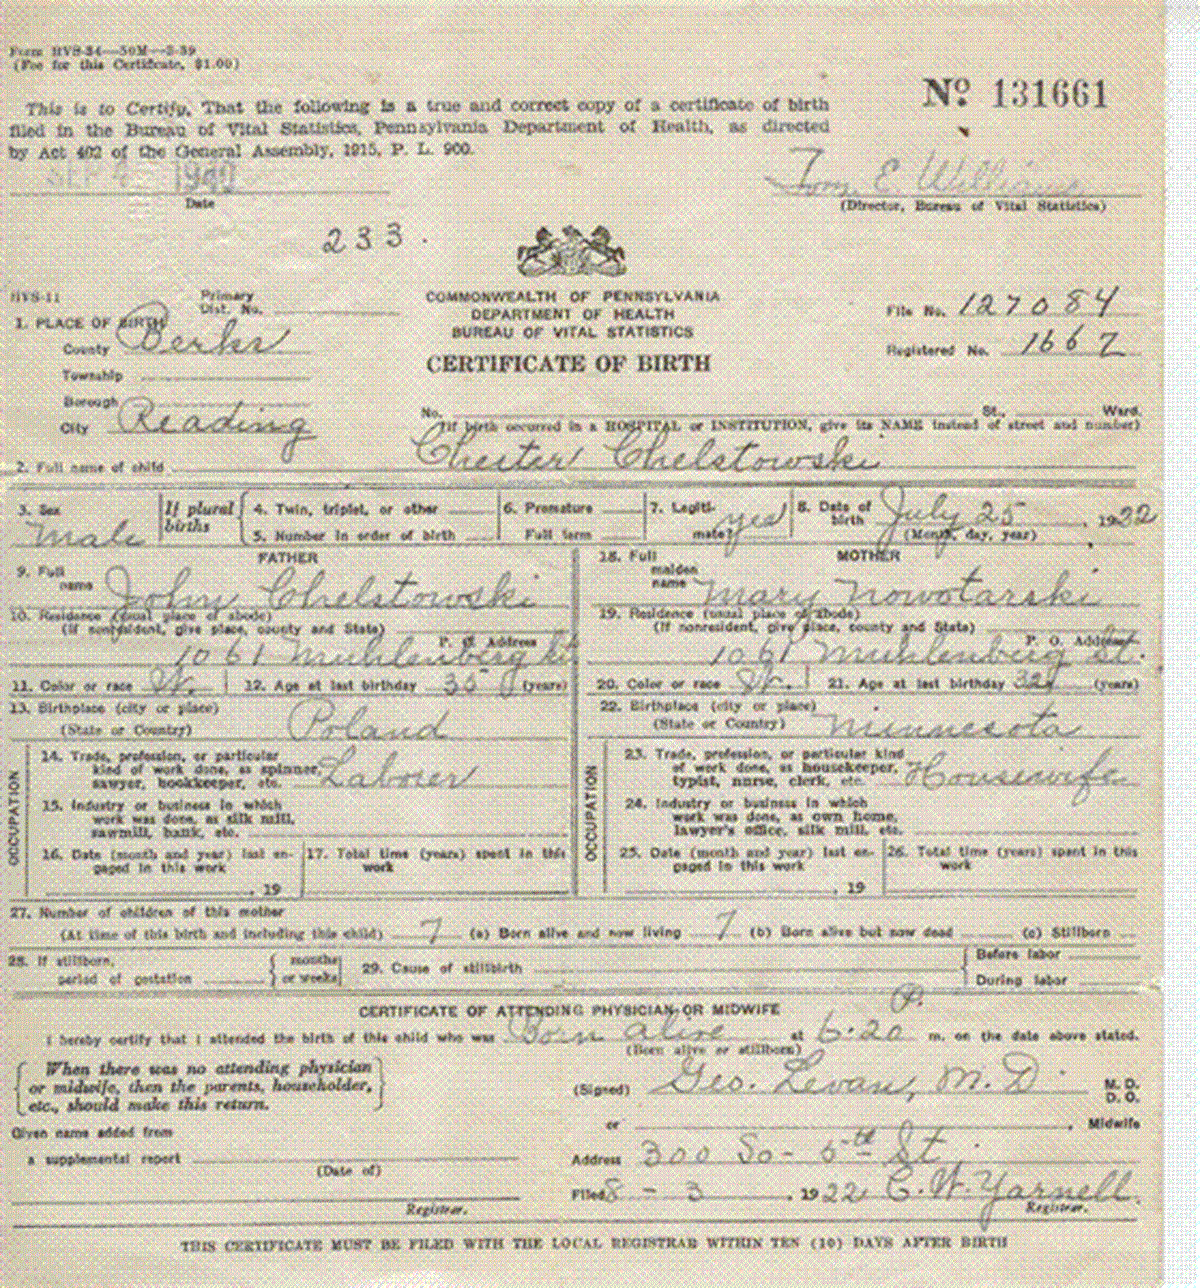 Form HVS-34—50M—3-39
(Fee for this Certificate, $1.00)
Nº 131661
This is to Certify, That the following is a true and correct copy of a certificate of birth
filed in the Bureau of Vital Statistics, Pennsylvania Department of Health, as directed
by Act 402 of the General Assembly, 1915, P. L. 900.
SEP 1940
Date
Tom E Williams
(Director, Bureau of Vital Statistics)
233.
HVS-11
Primary
Dist. No.
COMMONWEALTH OF PENNSYLVANIA
DEPARTMENT OF HEALTH
BUREAU OF VITAL STATISTICS
CERTIFICATE OF BIRTH
File No. 127084
Registered No. 1667
1. PLACE OF BIRTH
County Berks
Township
Borough
City Reading
No. St., Ward.
(If birth occurred in a HOSPITAL or INSTITUTION, give its NAME instead of street and number)
2. Full name of child Chester Chelstowski
3. Sex Male
If plural births
4. Twin, triplet, or other
5. Number in order of birth
6. Premature
Full term
7. Legitimate? yes
8. Date of birth July 25, 1922
(Month, day, year)
FATHER
9. Full name John Chelstowski
10. Residence (usual place of abode)
(If nonresident, give place, county and State)
P. O. Address
1061 Muhlenberg St
11. Color or race W. 12. Age at last birthday 35 (years)
13. Birthplace (city or place)
(State or Country) Poland
OCCUPATION
14. Trade, profession, or particular
kind of work done, as spinner,
sawyer, bookkeeper, etc. Laborer
15. Industry or business in which
work was done, as silk mill,
sawmill, bank, etc.
16. Date (month and year) last engaged in this work , 19
17. Total time (years) spent in this work
MOTHER
18. Full maiden name Mary Nowotarski
19. Residence (usual place of abode)
(If nonresident, give place, county and State)
P. O. Address
1061 Muhlenberg St.
20. Color or race W. 21. Age at last birthday 32 (years)
22. Birthplace (city or place)
(State or Country) Minnesota
OCCUPATION
23. Trade, profession, or particular kind
of work done, as housekeeper,
typist, nurse, clerk, etc. Housewife
24. Industry or business in which
work was done, as own home,
lawyer's office, silk mill, etc.
25. Date (month and year) last engaged in this work , 19
26. Total time (years) spent in this work
27. Number of children of this mother
(At time of this birth and including this child) 7 (a) Born alive and now living 7 (b) Born alive but now dead (c) Stillborn
28. If stillborn,
period of gestation { months or weeks
29. Cause of stillbirth
{ Before labor
During labor
CERTIFICATE OF ATTENDING PHYSICIAN OR MIDWIFE
I hereby certify that I attended the birth of this child who was Born alive at 6.20 P. m. on the date above stated.
(Born alive or stillborn)
{ When there was no attending physician
or midwife, then the parents, householder,
etc., should make this return. }
(Signed) Geo. Levan, M. D. M. D.
D. O.
or , Midwife
Given name added from
a supplemental report
(Date of)
Registrar.
Address 300 So- 5th St
Filed 8 - 3, 1922 C. W. Yarnell.
Registrar.
THIS CERTIFICATE MUST BE FILED WITH THE LOCAL REGISTRAR WITHIN TEN (10) DAYS AFTER BIRTH